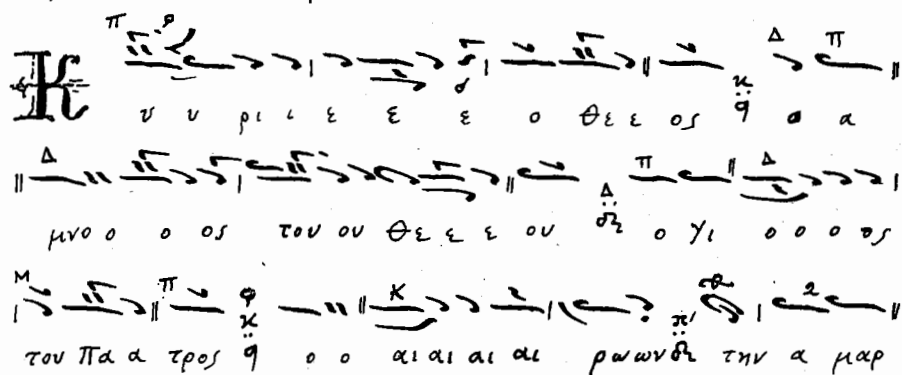 Κ υ υ ρι ι ε ε ε ο θε ε ος ο α
μνο ο ο ος του ου Θε ε ε ου ο γι ο ο ο ος
του Πα α τρος ο ο αι αι αι αι ρω ων την α μαρ